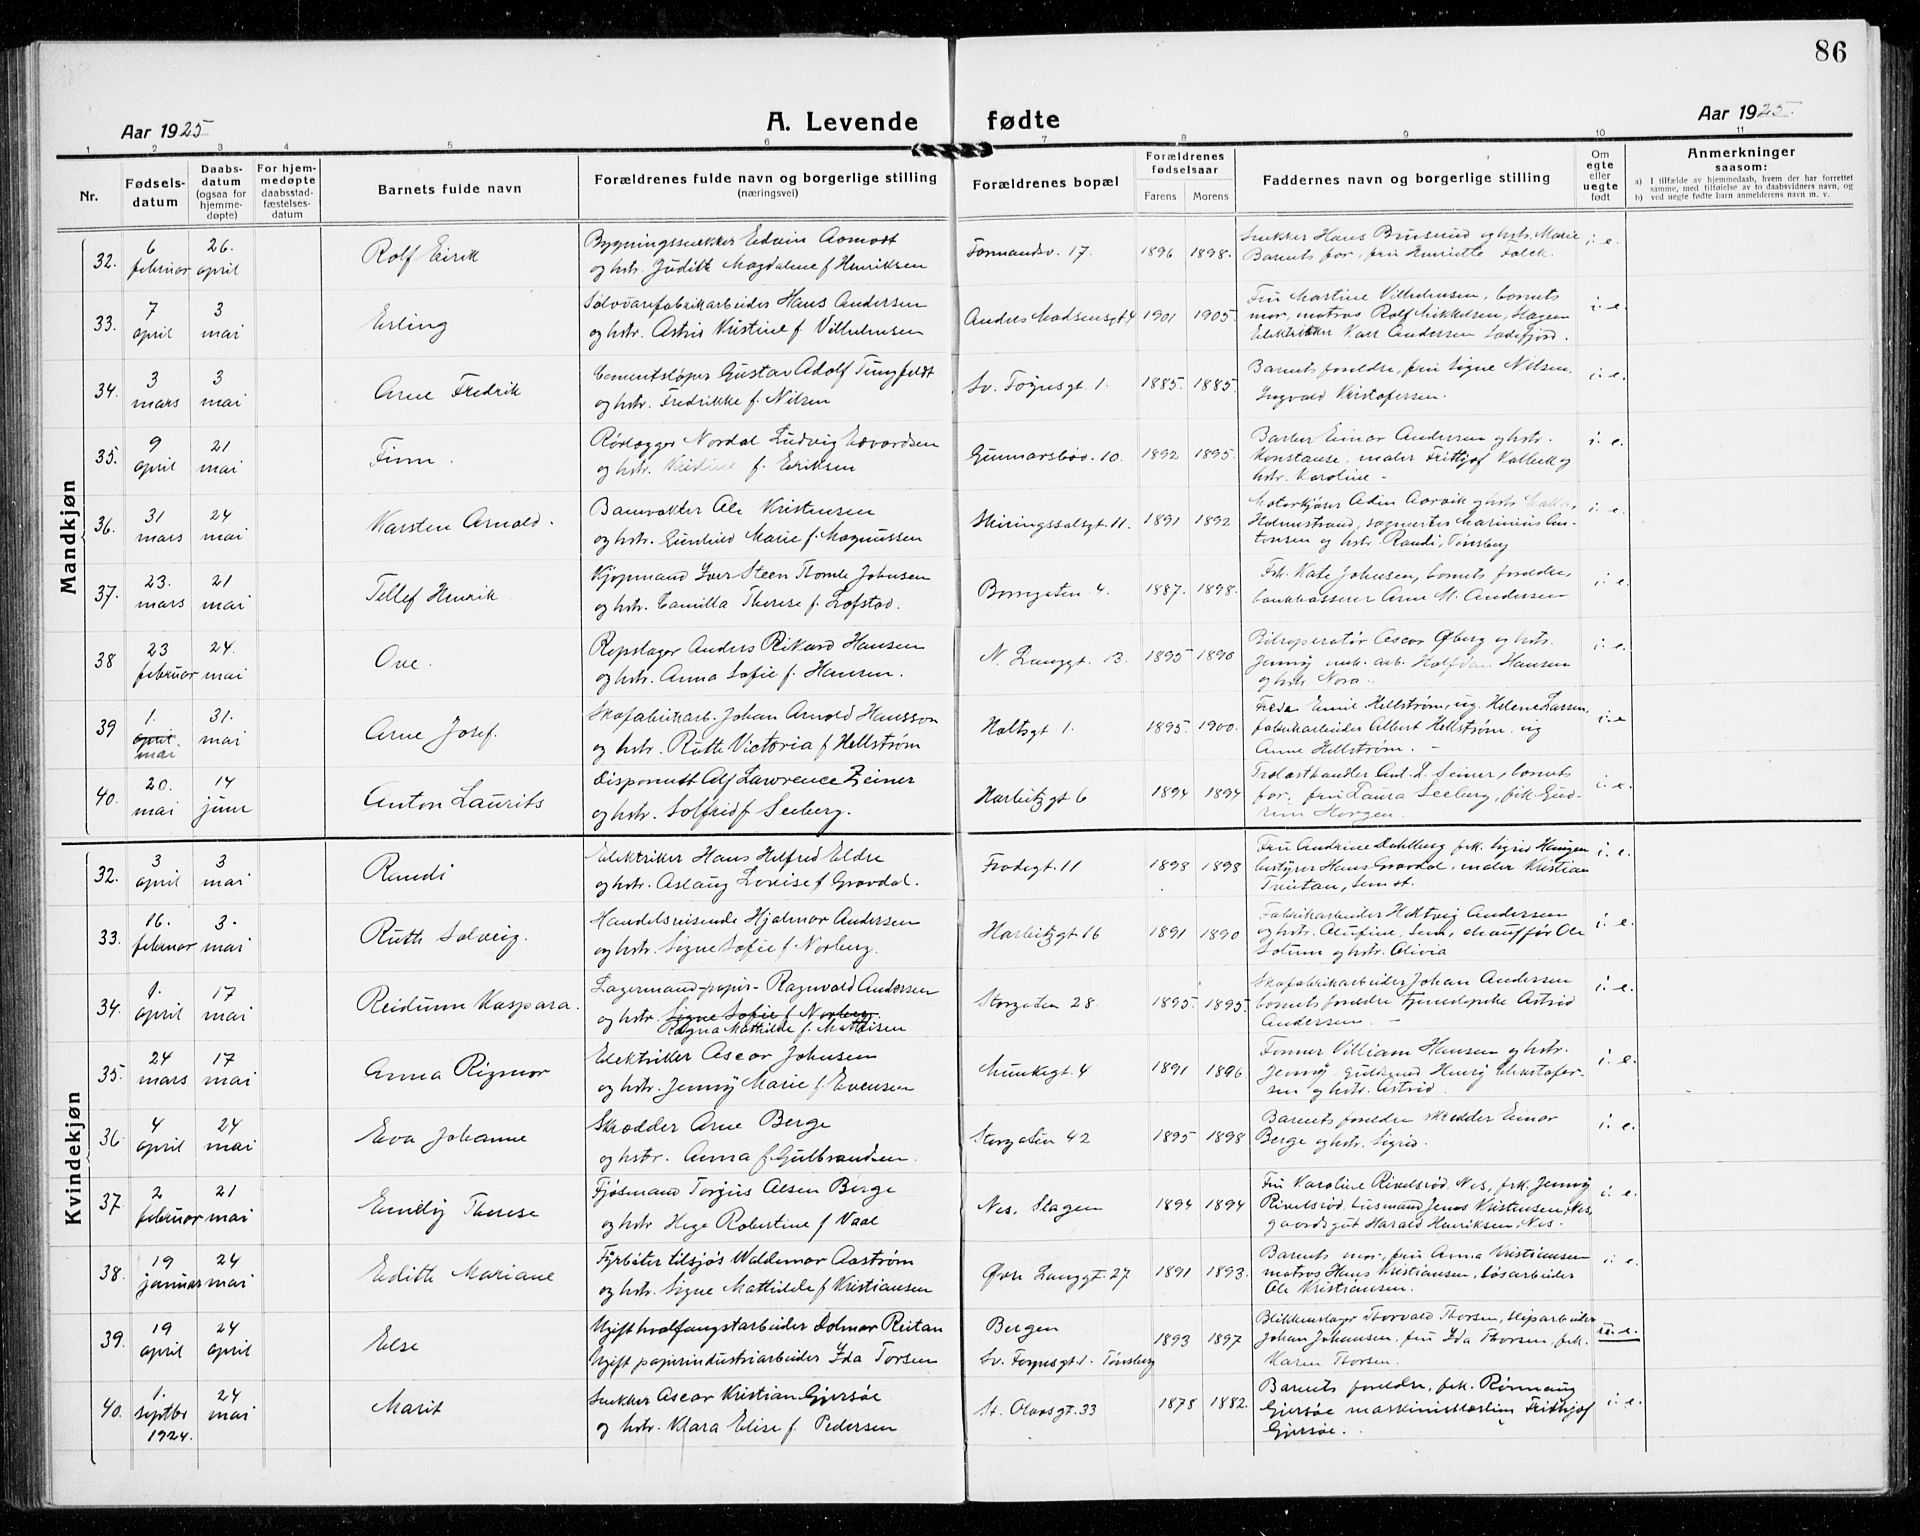 86
Aar 1925
A. Levende fødte
Aar 1925.
1 2 3 4 5 6 7 8 9 10 11
Nr.
Fødsels-
datum
Daabs-
datum
(ogsaa for
hjemme-
døpte)
For hjem-
medøpte
daabsstad-
fæstelses-
datum
Barnets fulde navn
Forældrenes fulde navn og borgerlige stilling
(næringsvei)
Forældrenes bopæl
Forældrenes
fødselsaar
Farens Morens
Faddernes navn og borgerlige stilling
Om
egte
eller
uegte
født
Anmerkninger
saasom:
a) I tilfælde av hjemmedaab, hvem der har forrettet
samme, med tilføielse av to daabsvidners navn, og
b) ved uegte fødte barn anmelderens navn m. v.
Mandkjøn
32. 6 februar 26. april Rolf Eirik
Bygningssnekker Edvin Aamodt
og hstr. Judith Magdalene f Henriksen
Formandsv. 17. 1896 1898.
Snekker Hans Bruserud og hstr. Marie
Barnets far, fru Henriette Falck.
i. e.
33. 7 april 3 mai Erling
Sølvvarefabrikarbeider Hans Andersen
og hstr. Astrid Kristine f. Vilhelmsen
Anders Madsensgt 4 1901 1905.
Fru Martine Vilhelmsen, barnets
mor, matros Rolf Mikkelsen, Slagen
Elektrikker Karl Andersen Sandefjord.
i. e.
34. 3 mars 3 mai Arne Fredrik
Cementstøper Gustav Adolf Ljungfeldt
og hstr. Fredrikke f. Nilsen
Sv. Føynsgt. 1. 1885. 1885.
Barnets foreldre, fru Signe Nilsen,
Ingvald Kristofersen.
i. e.
35. 9 april 21 mai Finn.
Rørlægger Nordal Ludvig Edvardsen
og hstr. Kristine f. Eriksen
Gunnarsbøv. 10. 1892 1895.
Barber Einar Andersen og hstr.
Konstanse, maler Frithjof Kalbeck og
hstr. Karoline -
i. e.
36. 31 mars 24 mai Karsten Arnold.
Banevokter Ole Kristensen
og hstr. Gunhild Marie f. Magnussen
Skiringssalsgt. 11. 1891 1892
Motorkjører Odin Aarvik og hstr.
Holmestrand, sagmester Marinius An-
tonsen og hstr. Randi, Tønsberg
i. e.
37. 23. mars 21 mai Tellef Henrik
Kjøpmand Iver Steen Thomle Johnsen
og hstr. Camilla Therese f. Lofstad.
Borregaten 4. 1887. 1898.
Frk. Kate Johnsen, barnets foreldre,
bankkasserer Arne M. Andersen
i. e.
38 23 februar 24. mai Ove.
Repslager Anders Rikard Hansen
og hstr. Anna Sofie f. Hansen.
N. Langgt. 13. 1895 1896
Bilreperatør Oscar Øberg og hstr.
Jenny mek. arb. Halfdan Hansen
og hstr Nora.
i. e.
39 1. april mai 31. mai Arne Josef.
Skofabrikarb. Johan Arnold Hansson
og hstr. Ruth Victoria f Hellstrøm
Holtsgt 1. 1895. 1900.
Emil Hellstrøm, ug. Helene Larsen,
fabrikarbeider Albert Hellstrøm, ug
Anne Hellstrøm. -
i. e
40. 20. mai 14 juni Anton Laurits
Disponent Alf Lawrence Zeiner
og hstr. Solfrid f Seeberg.
Harbitzgt 6 1894 1894
Trelasthandler Ant. L. Zeiner, barnets
far, fru Laura Seeberg, frk Gud-
run Horgen.
i. e.
Kvindekjøn
32. 3 april 3 mai Randi
Elektriker Hans Helfred Eldre
og hstr. Aslaug Lovise f Gravdal.
Frodegt. 11 1898 1898
Fru Andrine Dahlberg frk. Sigrid Haugen
bestyrer Hans Gravdal, maler Kristian
Treitan, Sem st.
i. e.
33. 16. februar 3. mai Ruth Solveig.
Handelsreisende Hjalmar Andersen
og hstr. Signe Sofie f. Norberg.
Harbitzgt 16 1891 1890
Fabrikarbeider Hektvig Andersen
og hstr. Olufine, Sem, chauffør Ole
Solum og hstr. Olivia
i. e.
34. 1. april 17 mai Reidunn Kaspara.
Lagermand-papir- Ragnvald Andersen
og hstr. Signe Sofie f Norberg.
Ragna Mathilde f. Mathisen
Storgaten 28 1895. 1895
Skofabrikarbeider Johan Andersen
barnets foreldre tjenestepike Astrid
Andersen. -
i. e.
35. 24 mars 17 mai Anna Rigmor
Elektriker Oscar Johnsen
og hstr. Jenny Marie f. Evensen
Munkegt. 4 1891 1896
Former Villiam Hansen og hstr.
Jenny, Gullsmed Henry Kristofer-
sen og hstr. Astrid.
i. e.
36 4 april 24 mai Eva Johanne
Skrædder Arne Berge
og hstr. Anna f Gulbrandsen.
Storgaten 42 1895 1898
Barnets foreldre skredder Einar
Berge og hstr. Sigrid.
i. e.
37. 2 februar 21 mai Emely Therese
Fjøsmand Torgius Olsen Berge
og hstr Hege Robertine f Vaal
Nes. Slagen 1894 1894
Fru Karoline Rivelsrød. Nes, frk. Jenny
Rivelsrød. husmand Jens Kristensen, Nes,
gaardsgut Harald Henriksen, Nes.
i. e.
38. 19 januar 24 mai Edith Mariane
Fyrbøter tilsjøs Waldemar Aastrøm
og hstr. Signe Mathilde f Kristiansen
Øvre Langgt. 27 1891 1893.
Barnets mor, fru Anna Kristiansen
matros Hans Kristiansen, løsarbeider
Ole Kristiansen.
i. e.
39. 19 april 24 april Else
Ugift hvalfangstarbeider Dolmar Reitan
Ugift papirindustriarbeider Ida Torsen
Bergen
Sv. Foynsgt. 1. Tønsberg
1893 1897
Blikkenslager Thorvald Thorsen, skipsarbeider
Johan Johansen, fru Ida Thorsen, frk.
Maren Thorsen.
u. e.
40. 1. septbr 1924. 24 mai Marit
Snekker Oscar Kristian Gjersøe
og hstr. Klara Elise f. Pedersen
St. Olavsgt. 33 1878 1882.
Barnets foreldre, frk. Rønnaug
Gjersøe maskinistlærling Frithjof
Gjersøe.
i. e.